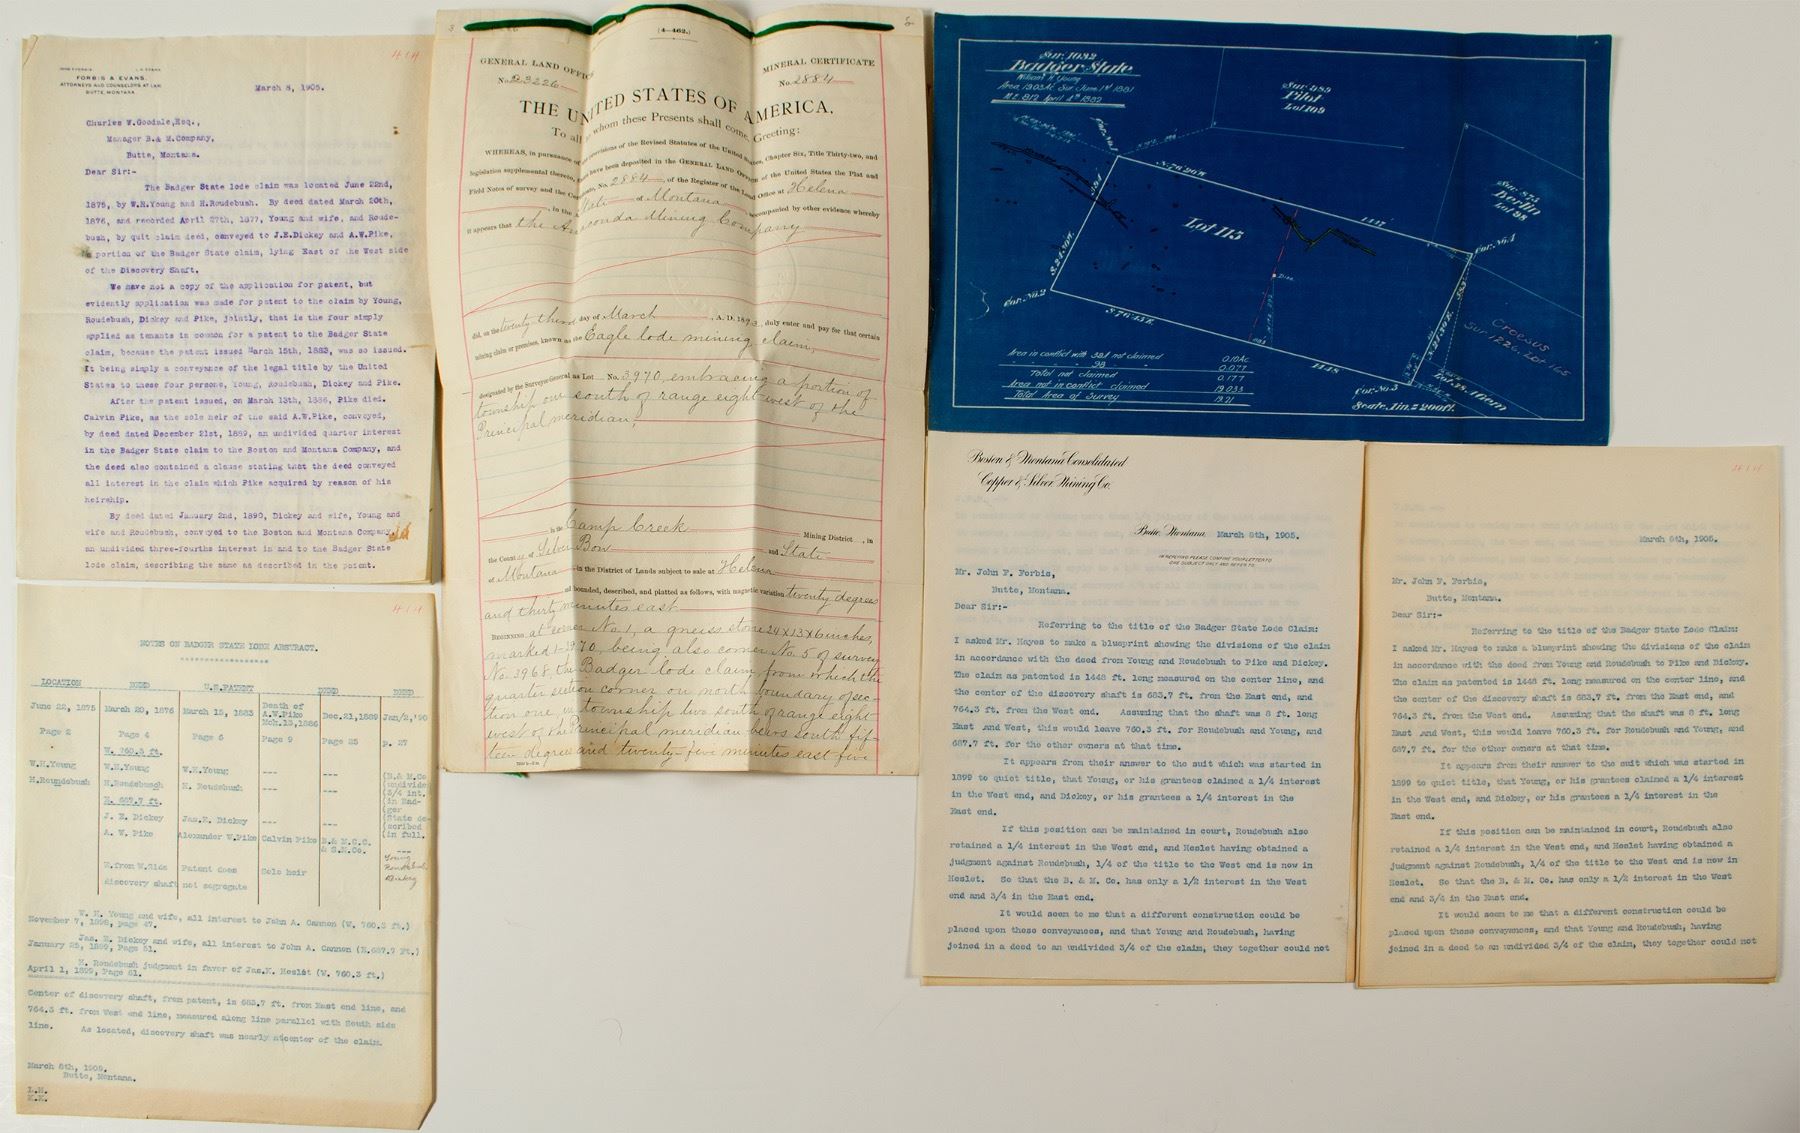 FORBIS & EVANS.
ATTORNEYS AND COUNSELORS AT LAW
BUTTE, MONTANA.
414
March 8, 1905.
Charles W.Goodale,Esq.,
Manager B.& M.Company,
Butte, Montana.
Dear Sir:-
The Badger State lode claim was located June 22nd,
1875, by W.H.Young and H.Roudebush. By deed dated March 20th,
1876, and recorded April 27th, 1877, Young and wife, and Roude-
bush, by quit claim deed, conveyed to J.E.Dickey and A.W.Pike,
a portion of the Badger State claim, lying East of the West side
of the Discovery Shaft.
We have not a copy of the application for patent, but
evidently application was made for patent to the claim by Young,
Roudebush, Dickey and Pike, jointly, that is the four simply
applied as tenants in common for a patent to the Badger State
claim, because the patent issued March 15th, 1883, was so issued.
It being simply a conveyance of the legal title by the United
States to these four persons, Young, Roudebush, Dickey and Pike.
After the patent issued, on March 13th, 1886, Pike died.
Calvin Pike, as the sole heir of the said A.W.Pike, conveyed,
by deed dated December 21st, 1889, an undivided quarter interest
in the Badger State claim to the Boston and Montana Company, and
the deed also contained a clause stating that the deed conveyed
all interest in the claim which Pike acquired by reason of his
heirship.
By deed dated January 2nd, 1890, Dickey and wife, Young and
wife and Roudebush, conveyed to the Boston and Montana Company,
an undivided three-fourths interest in and to the Badger State
lode claim, describing the same as described in the patent.
414
NOTES ON BADGER STATE LODE ABSTRACT.
LOCATION DEED U.S.PATENT DEED DEED
June 22, 1875 March 20, 1876 March 15, 1883 Death of A.W.Pike Mch.13,1886 Dec.21,1889 Jan/2,'90
Page 2 Page 4 Page 6 Page 9 Page 25 p. 27
W. 760.3 ft.
W.H.Young W.H.Young W.H.Young --- ---
H.Roundebush H.Roudebusch H. Roudebush --- ---
E. 687.7 ft.
J. E. Dickey Jas.E. Dickey --- ---
A. W. Pike Alexander W.Pike Calvin Pike B.& M.C.C. & S.M.Co. ---
(B.& M.Co
undivide
(3/4 int.
in Bad-
ger
State de-
scribed
in full.
Young
Roudebush
Dickey
E.from W.Side Patent does Sole heir
discovery shaft not segregate
W. H. Young and wife, all interest to John A. Cannon (W. 760.3 ft.)
November 7, 1898, page 47.
Jas. E. Dickey and wife, all interest to John A. Cannon (E.687.7 Ft.)
January 25, 1899, Page 51.
H. Roudebush judgment in favor of Jas.K. Heslet (W. 760.3 ft.)
April 1, 1899, Page 61.
Center of discovery shaft, from patent, is 683.7 ft. from East end line, and
764.3 ft. from West end line, measured along line parallel with South side
line. As located, discovery shaft was nearly atcenter of the claim.
March 8th, 1905.
Butte, Montana.
(4-462.)
GENERAL LAND OFFICE
No. 23226
MINERAL CERTIFICATE
No. 2884
THE UNITED STATES OF AMERICA.
To all to whom these Presents shall come, Greeting:
WHEREAS, in pursuance of the provisions of the Revised Statutes of the United States, Chapter Six, Title Thirty-two, and
legislation supplemental thereto, there have been deposited in the GENERAL LAND OFFICE of the United States the Plat and
Field Notes of survey and the Certificate, No. 2884, of the Register of the Land Office at Helena
, in the State of Montana accompanied by other evidence whereby
it appears that the Anaconda Mining Company
did, on the twenty third day of March, A. D. 189 , duly enter and pay for that certain
mining claim or premises, known as the Eagle lode mining claim,
designated by the Surveyor-General as Lot No. 3970, embracing a portion of
township one south of range eight west of the
Principal meridian,
in the Camp Creek Mining District, in
the County of Silver Bow and State
of Montana in the District of Lands subject to sale at Helena
and bounded, described, and platted as follows, with magnetic variation twenty degrees
and thirty minutes east
BEGINNING at corner No. 1, a gneiss stone 24x13x6 inches,
marked 1-3970, being also corner No. 5 of survey
No. 3968, the Badger lode claim, from which the
quarter section corner on north boundary of sec-
tion one, in township two south of range eight
west of the Principal meridian bears south fif-
teen degrees and twenty-five minutes east five
Sur. 1032
Badger State
William H. Young
Area 19.03 Ac Sur. June 1st 1881
M.E. 812 April 4th 1882
Sur. 989
Pilot
Lot 109
Sur. 873
Berlin
Lot 98
Cor. No. 1
N. 76° 20' W.
1447
Lot 113
Cor. No. 4
S. 24° 30' W.
Cor. No. 2
S. 76° 45' E.
1448
Disc.
Cor. No. 3
Croesus
Sur 1226. Lot 165
Scale, 1 in. = 200 ft.
Area in conflict with 38A not claimed 0.10 Ac.
" " " 98 " " 0.077
Total not claimed 0.177
Area not in conflict claimed 19.033
Total Area of Survey 19.21
Boston & Montana Consolidated
Copper & Silver Mining Co.
Butte, Montana March 8th, 1905.
IN REPLYING PLEASE CONFINE YOUR LETTER TO
ONE SUBJECT ONLY AND REFER TO
Mr. John F. Forbis,
Butte, Montana.
Dear Sir:-
Referring to the title of the Badger State Lode Claim:
I asked Mr. Hayes to make a blueprint showing the divisions of the claim
in accordance with the deed from Young and Roudebush to Pike and Dickey.
The claim as patented is 1448 ft. long measured on the center line, and
the center of the discovery shaft is 683.7 ft. from the East end, and
764.3 ft. from the West end. Assuming that the shaft was 8 ft. long
East and West, this would leave 760.3 ft. for Roudebush and Young, and
687.7 ft. for the other owners at that time.
It appears from their answer to the suit which was started in
1899 to quiet title, that Young, or his grantees claimed a 1/4 interest
in the West end, and Dickey, or his grantees a 1/4 interest in the
East end.
If this position can be maintained in court, Roudebush also
retained a 1/4 interest in the West end, and Heslet having obtained a
judgment against Roudebush, 1/4 of the title to the West end is now in
Heslet. So that the B. & M. Co. has only a 1/2 interest in the West
end and 3/4 in the East end.
It would seem to me that a different construction could be
placed upon these conveyances, and that Young and Roudebush, having
joined in a deed to an undivided 3/4 of the claim, they together could not
414
March 8th, 1905.
Mr. John F. Forbis,
Butte, Montana.
Dear Sir:-
Referring to the title of the Badger State Lode Claim:
I asked Mr. Hayes to make a blueprint showing the divisions of the claim
in accordance with the deed from Young and Roudebush to Pike and Dickey.
The claim as patented is 1448 ft. long measured on the center line, and
the center of the discovery shaft is 683.7 ft. from the East end, and
764.3 ft. from the West end. Assuming that the shaft was 8 ft. long
East and West, this would leave 760.3 ft. for Roudebush and Young, and
687.7 ft. for the other owners at that time.
It appears from their answer to the suit which was started in
1899 to quiet title, that Young, or his grantees claimed a 1/4 interest
in the West end, and Dickey, or his grantees a 1/4 interest in the
East end.
If this position can be maintained in court, Roudebush also
retained a 1/4 interest in the West end, and Heslet having obtained a
judgment against Roudebush, 1/4 of the title to the West end is now in
Heslet. So that the B. & M. Co. has only a 1/2 interest in the West
end and 3/4 in the East end.
It would seem to me that a different construction could be
placed upon these conveyances, and that Young and Roudebush, having
joined in a deed to an undivided 3/4 of the claim, they together could not